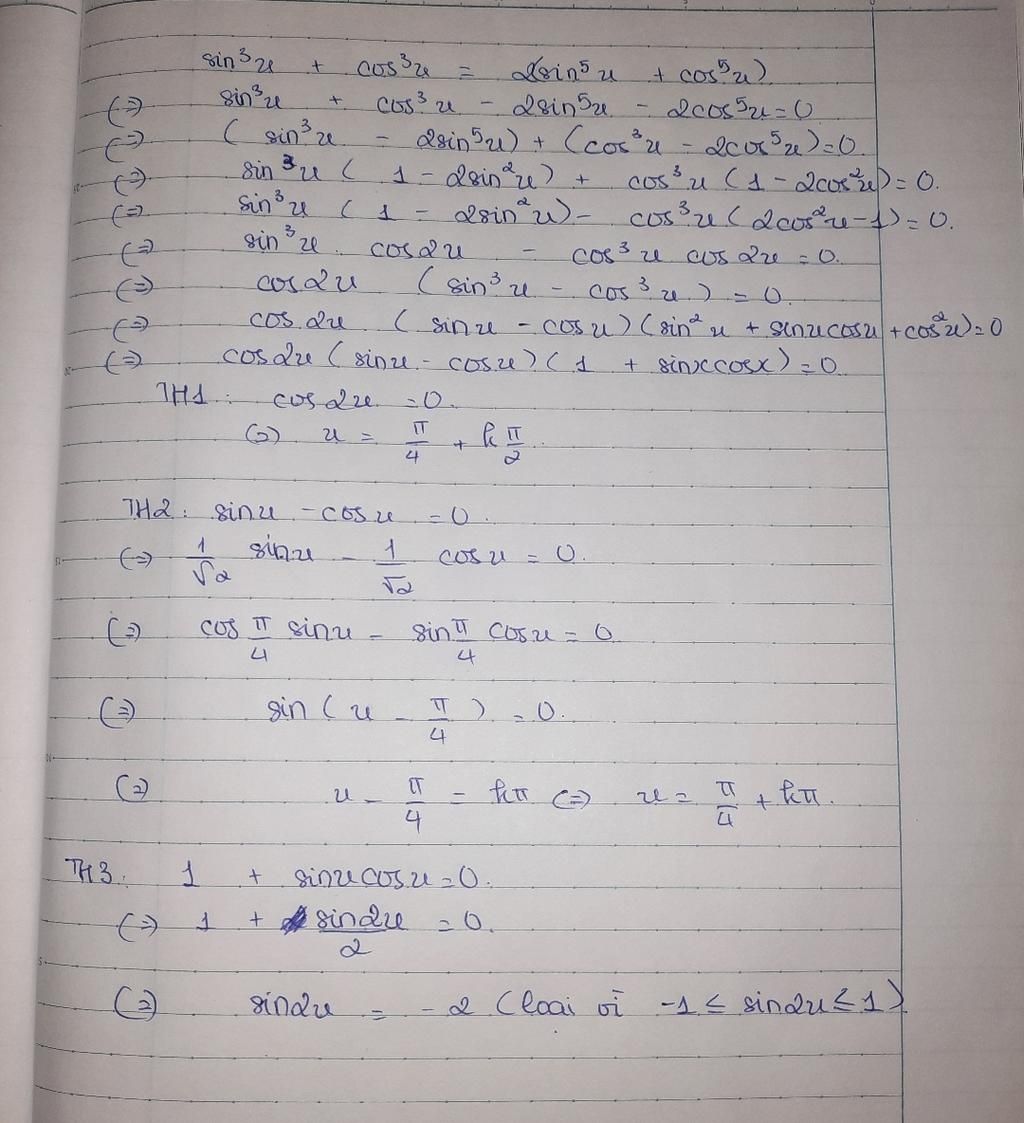 sin³x + cos³x = 2(sin⁵x + cos⁵x)
(=) sin³x + cos³x - 2sin⁵x - 2cos⁵x = 0
(=) (sin³x - 2sin⁵x) + (cos³x - 2cos⁵x) = 0
(=) sin³x (1 - 2sin²x) + cos³x (1 - 2cos²x) = 0.
(=) sin³x (1 - 2sin²x) - cos³x (2cos²x - 1) = 0.
(=) sin³x. cos2x - cos³x cos2x = 0.
(=) cos2x (sin³x - cos³x) = 0.
(=) cos2x (sinx - cosx)(sin²x + sinxcosx + cos²x) = 0
(=) cos2x (sinx - cosx)(1 + sinxcosx) = 0.
TH1: cos2x = 0.
(=) x = π/4 + k π/2.
TH2: sinx - cosx = 0.
(=) 1/√2 sinx - 1/√2 cosx = 0.
(=) cos π/4 sinx - sin π/4 cosx = 0.
(=) sin (x - π/4) = 0.
(=) x - π/4 = kπ (=) x = π/4 + kπ.
TH3: 1 + sinxcosx = 0.
(=) 1 + sin2x/2 = 0.
(=) sin2x = -2 (loại vì -1 ≤ sin2x ≤ 1)